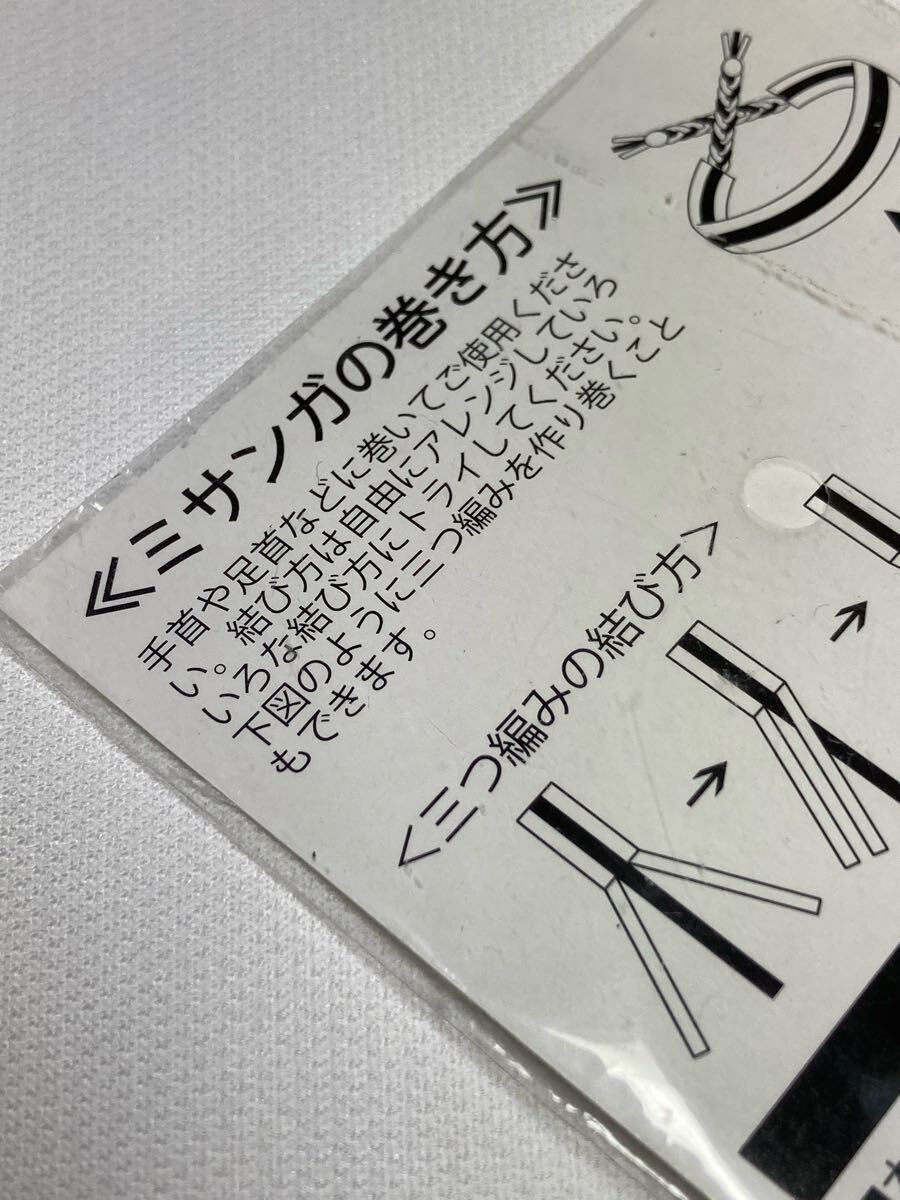 ≪ミサンガの巻き方≫
手首や足首などに巻いてご使用くださ
い。結び方は自由にアレンジしていろ
いろな結び方にトライしてください。
下図のように三つ編みを作り巻くこと
もできます。
<三つ編みの結び方>